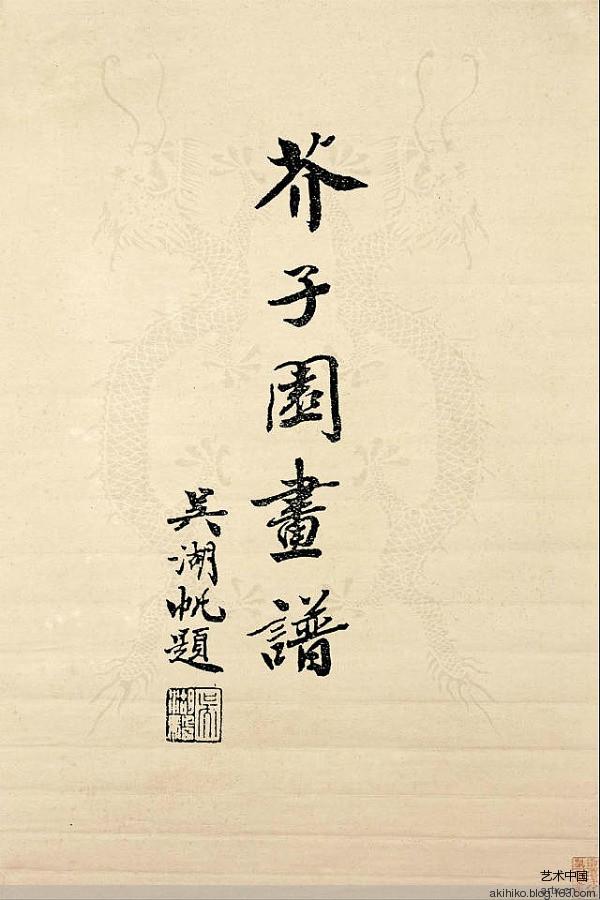 芥子園畫譜
吴湖帆題
艺术中国
akihiko.blog.163.com